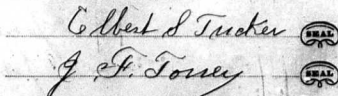 Elbert S Tucker SEAL
J. F. Torrey SEAL